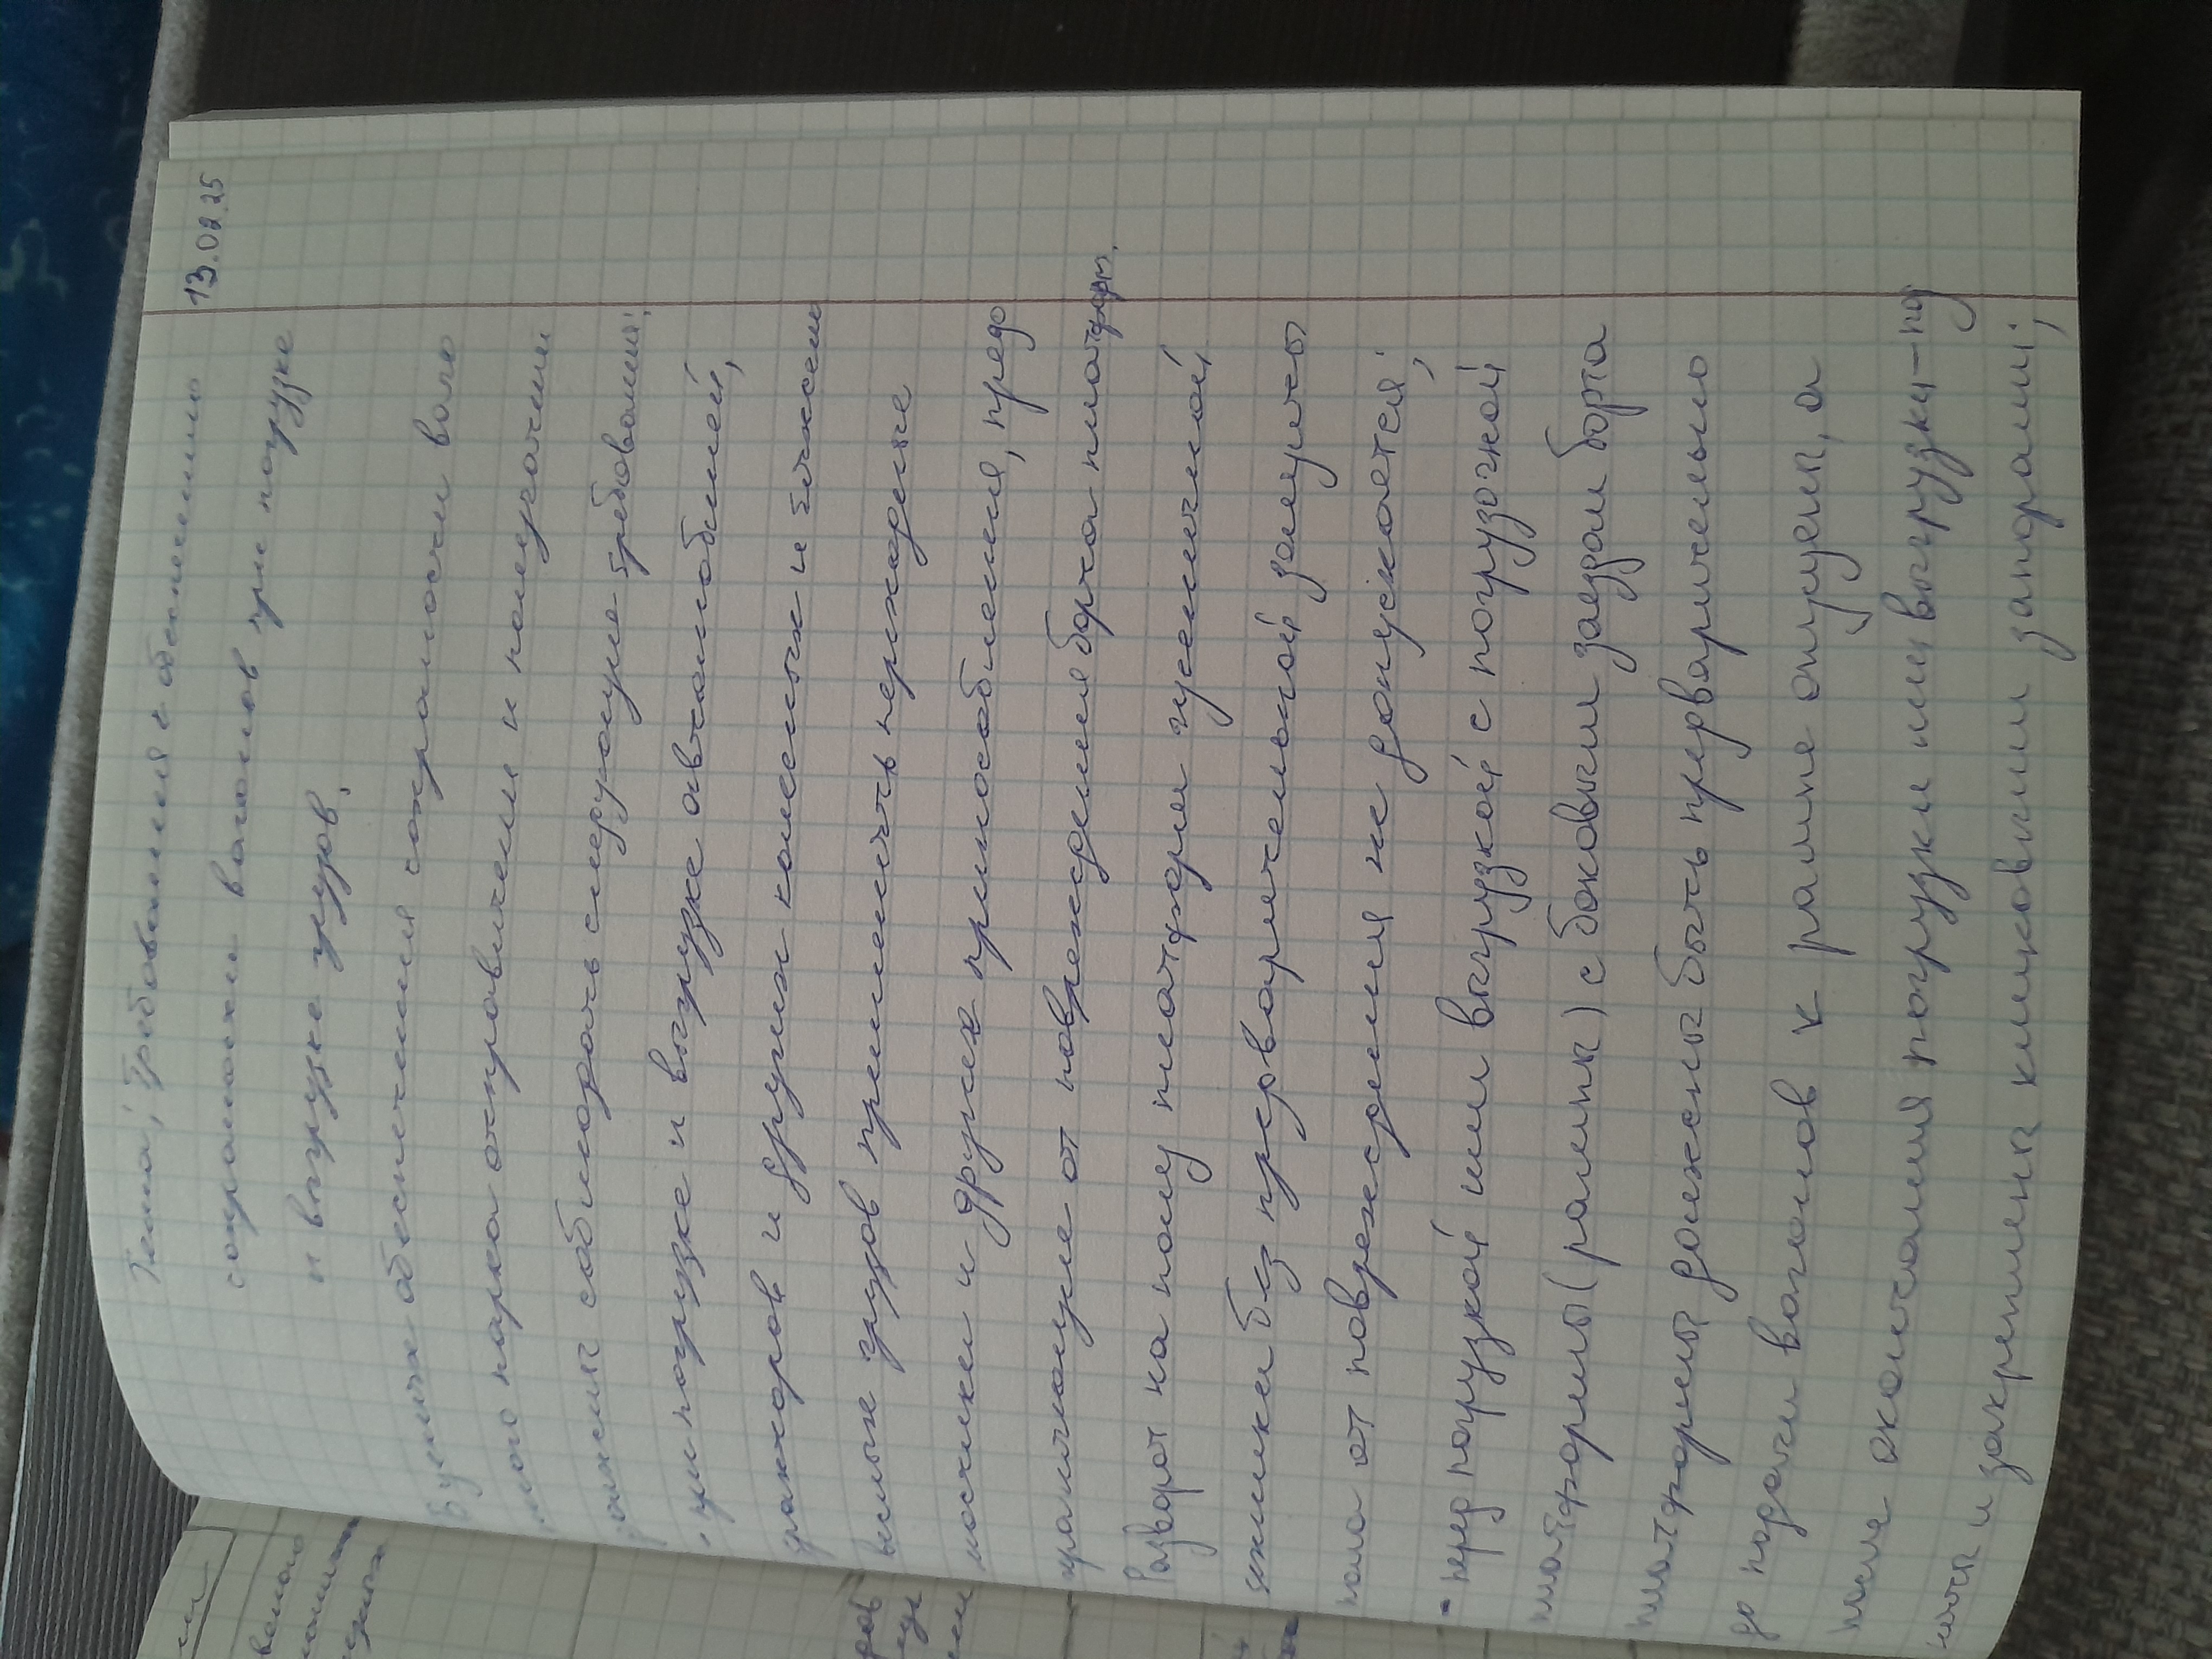 13.02.25
Тема: Требования к обеспечению
сохранности вагонов при погрузке
и выгрузке грузов.
В целях обеспечения сохранности ваго
нного парка отправители и получатели
должны соблюдать следующие требования:
• при погрузке и выгрузке автомобилей,
тракторов и других колесных и тяжело
весных грузов применять переходные
мостики и другие приспособления, предо
храняющие от повреждения борта платформ.
Разворот на полу платформы гусеничной
техники без предварительной защиты
пола от повреждения не допускается;
- перед погрузкой или выгрузкой с погрузочной
платформы (рампы) с боковым заездом борта
платформы должны быть предварительно
до подачи вагонов к рампе опущены, а
после окончания погрузки или выгрузки – под
няты и закреплены клиновыми запорами;